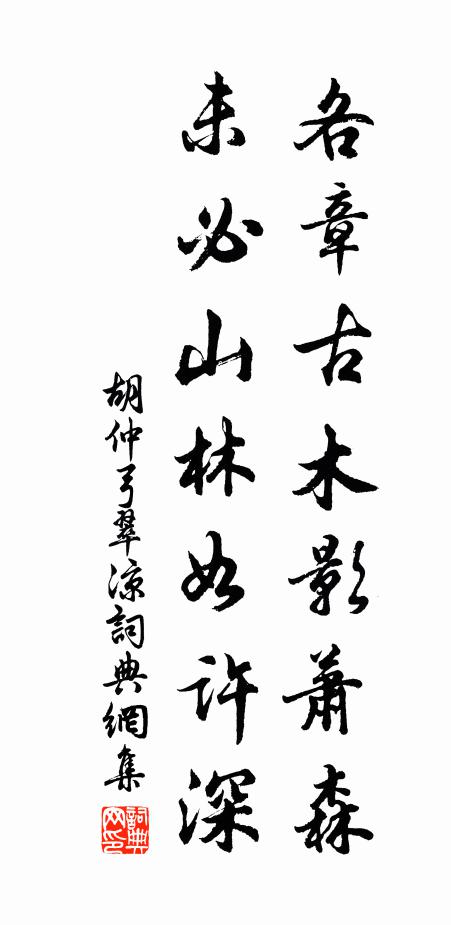 各章古木影蕭森
未必山林如許深
胡仲弓翠涼詞典網集
詞典網印